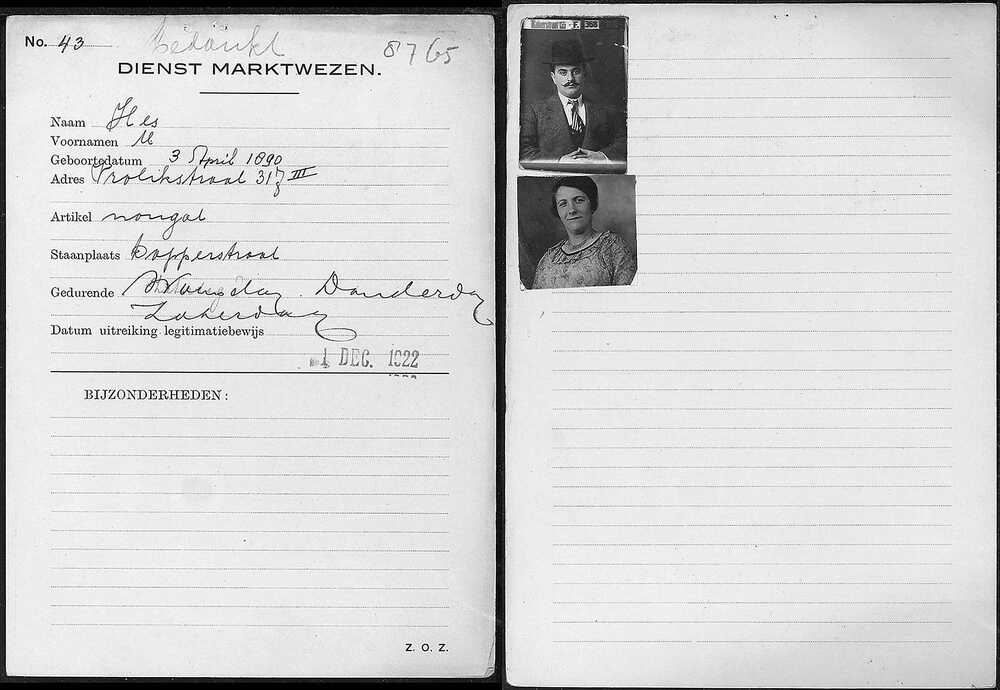 No. 43 bedankt 8765
DIENST MARKTWEZEN.
Naam Hes
Voornamen M
Geboortedatum 3 April 1890
Adres Prolikstraat 317 III
Artikel nougat
Staanplaats Dapperstraat
Gedurende Maandag. Donderdag
Zaterdag
Datum uitreiking legitimatiebewijs
1 DEC. 1922
BIJZONDERHEDEN:
Z. O. Z.
F. 368